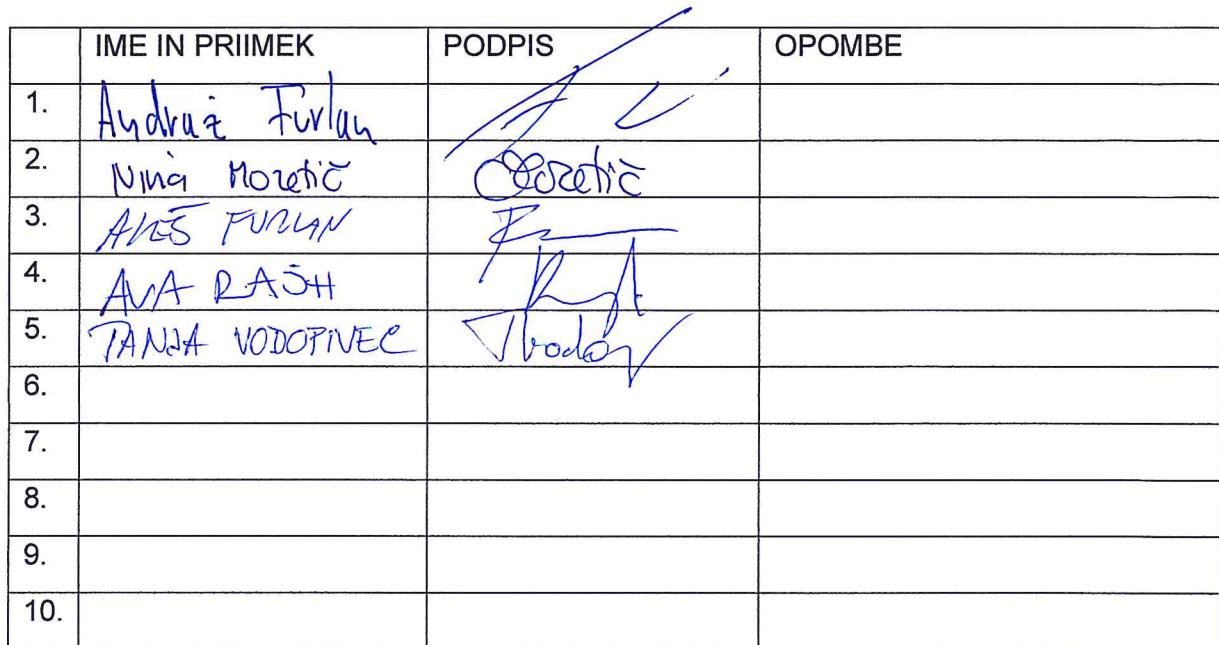 IME IN PRIIMEK PODPIS OPOMBE
1. Andraž Furlan
2. Nina Mozetič Mozetič
3. ALEŠ FURLAN
4. RAŠH
5. TANJA VODOPIVEC
6.
7.
8.
9.
10.